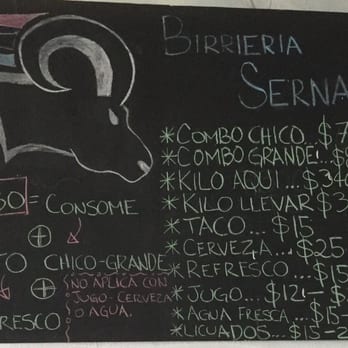 BIRRIERIA
SERNA
*COMBO CHICO..$7
*COMBO GRANDE.
*KILO AQUI...$34
*KILO LLEVAR $3
*TACO...$15
*CERVEZA...$25
*REFRESCO...$15
*JUGO...$12-$
*AGUA FRESCA $15-
*LICUADOS...$15-2
= CONSOME
+
CHICO-GRANDE
+
NO APLICA CON
JUGO-CERVEZA
O AGUA.